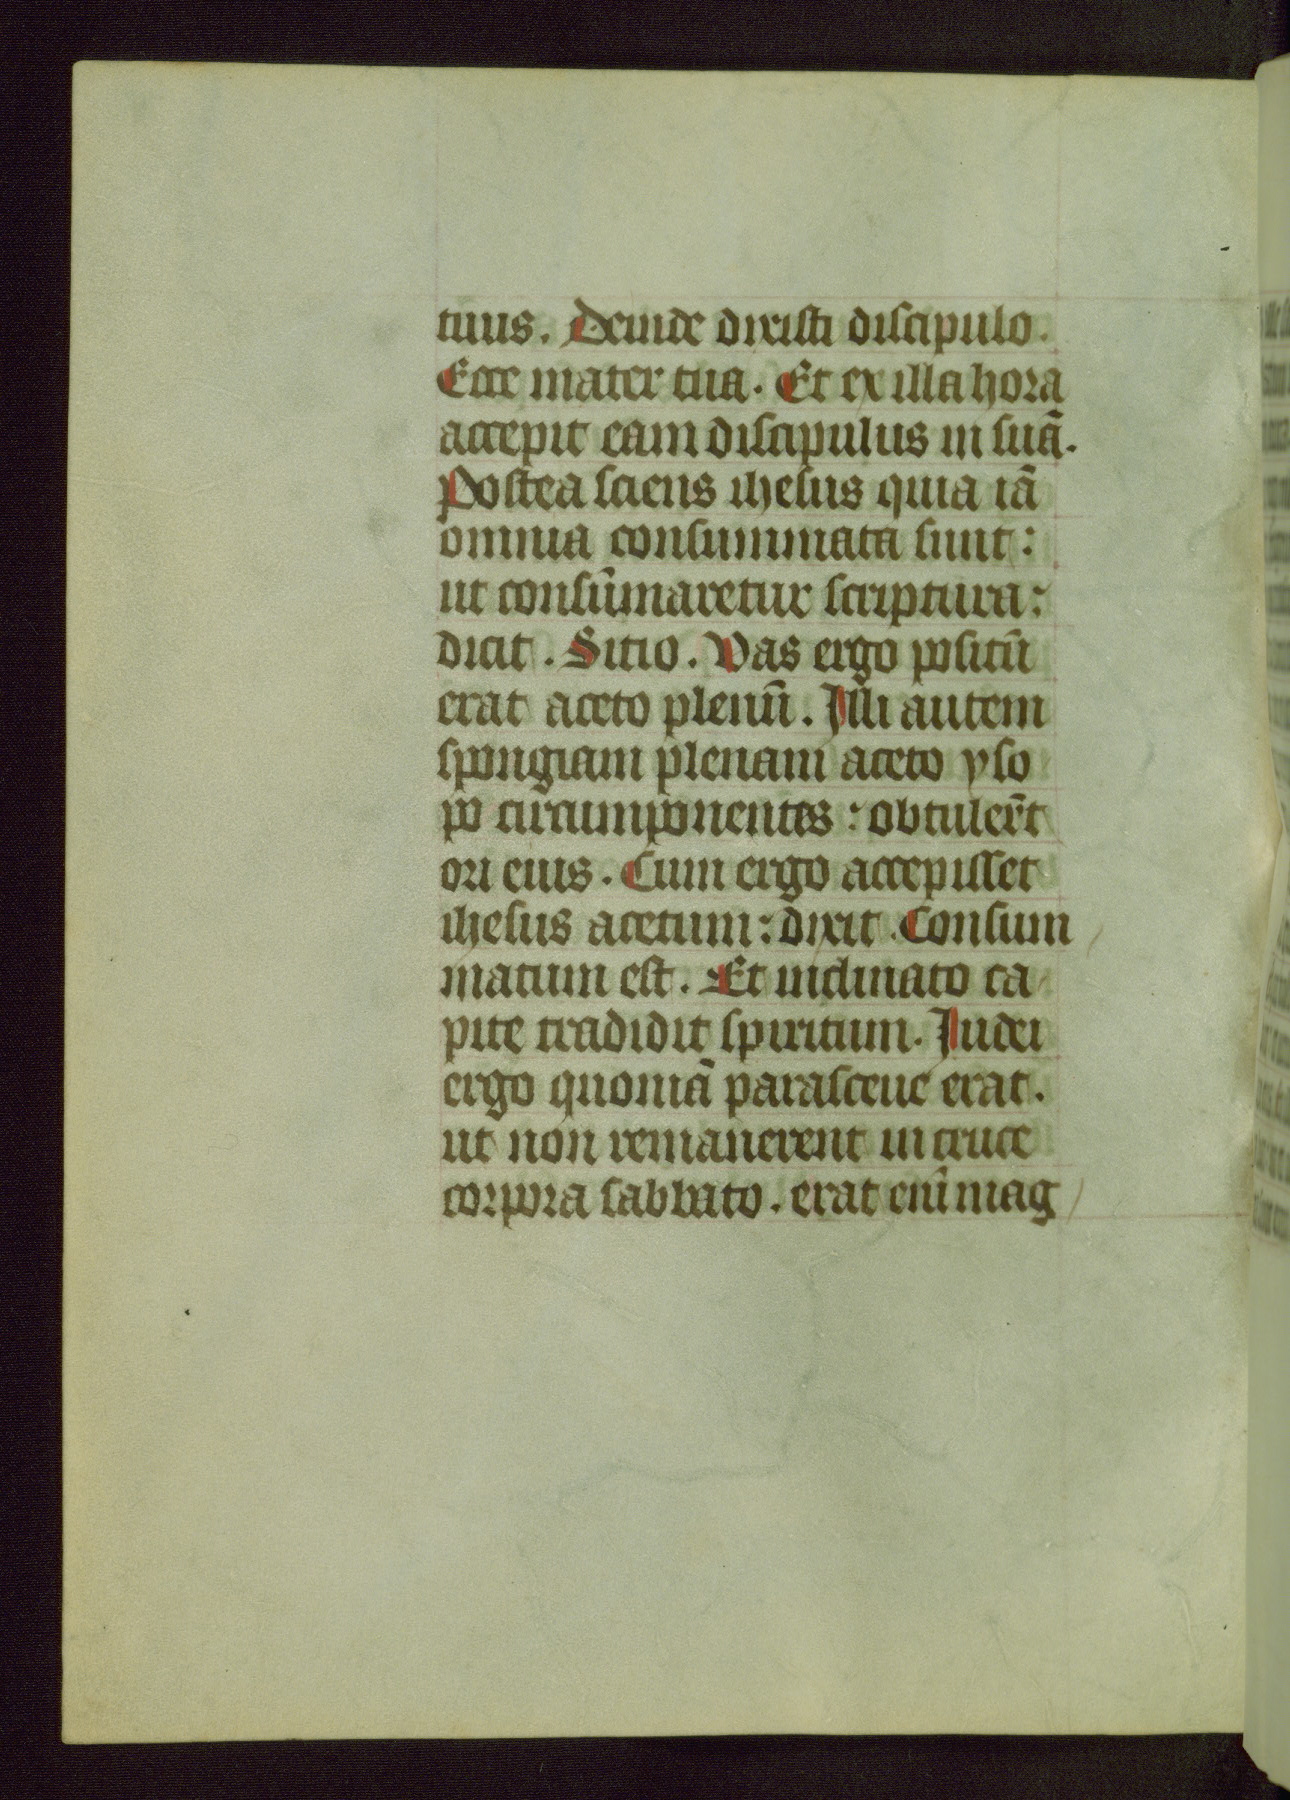 tuus. Deinde dixisti discipulo.
Ecce mater tua. Et ex illa hora
accepit eam discipulus in suā.
Postea sciens ihesus quia iā
omnia consummata sunt:
ut consūmaretur scriptura:
dicit. Sitio. Vas ergo positū
erat aceto plenū. Illi autem
spongiam plenam aceto yso
po circumponentes: obtuler̄t
ori eius. Cum ergo accepisset
ihesus acetum: dixit. Consum
matum est. Et inclinato ca
pite tradidit spiritum. Iudei
ergo quoniā parasceue erat.
ut non remanerent in cruce
corpora sabbato. erat enī mag